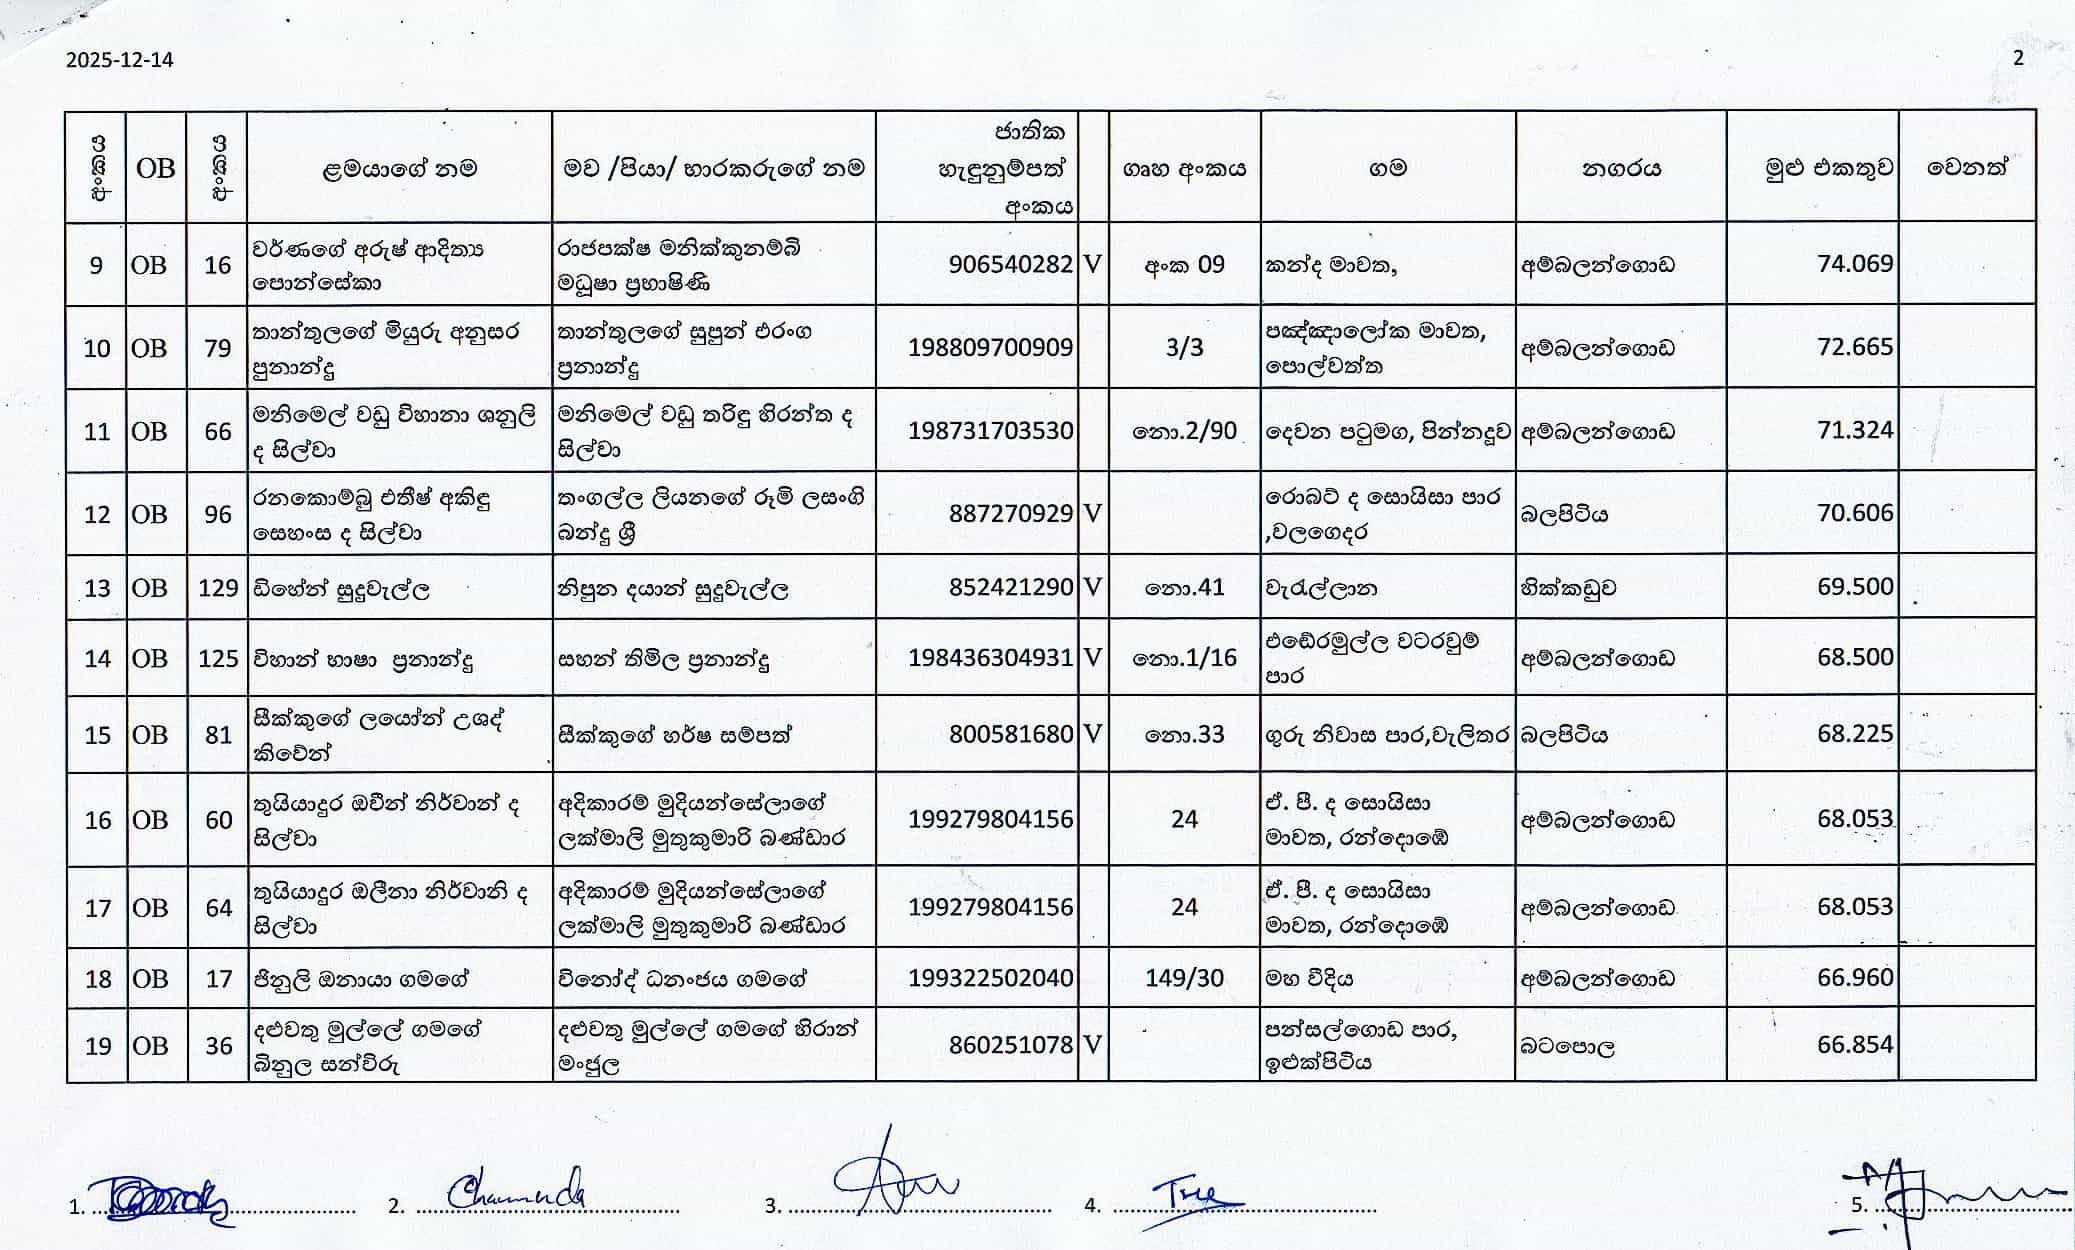 2025-12-14 2
අංකය OB අංකය ළමයාගේ නම මව /පියා/ භාරකරුගේ නම ජාතික හැඳුනුම්පත් අංකය ගෘහ අංකය ගම නගරය මුළු එකතුව වෙනත්
9 OB 16 වර්ණගේ අරුෂ් ආදිත්‍ය පොන්සේකා රාජපක්ෂ මනික්කුනම්බි මධූෂා ප්‍රභාෂිණි 906540282 V අංක 09 කන්ද මාවත, අම්බලන්ගොඩ 74.069
10 OB 79 තාන්තුලගේ මියුරු අනුසර පුනාන්දු තාන්තුලගේ සුපුන් එරංග ප්‍රනාන්දු 198809700909 3/3 පඤ්ඤාලෝක මාවත, පොල්වත්ත අම්බලන්ගොඩ 72.665
11 OB 66 මනිමෙල් වඩු විහානා ශනුලි ද සිල්වා මනිමෙල් වඩු තරිඳු හිරන්ත ද සිල්වා 198731703530 නො.2/90 දෙවන පටුමග, පින්නදූව අම්බලන්ගොඩ 71.324
12 OB 96 රනකොම්බු එතීෂ් අකිඳු සෙහංස ද සිල්වා තංගල්ල ලියනගේ රූමි ලසංගි බන්දු ශ්‍රී 887270929 V රොබට් ද සොයිසා පාර ,වලගෙදර බලපිටිය 70.606
13 OB 129 ඩිහේන් සුදුවැල්ල නිපුන දයාන් සුදුවැල්ල 852421290 V නො.41 වැරැල්ලාන හික්කඩුව 69.500
14 OB 125 විහාන් භාෂා ප්‍රනාන්දු සහන් තිමිල ප්‍රනාන්දු 198436304931 V නො.1/16 එඬේරමුල්ල වටරවුම් පාර අම්බලන්ගොඩ 68.500
15 OB 81 සීක්කුගේ ලයෝන් උශද් කිවේන් සීක්කුගේ හර්ෂ සම්පත් 800581680 V නො.33 ගුරු නිවාස පාර,වැලිතර බලපිටිය 68.225
16 OB 60 තුයියාදුර ඔවීන් නිර්වාන් ද සිල්වා අදිකාරම් මුදියන්සේලාගේ ලක්මාලි මුතුකුමාරි බණ්ඩාර 199279804156 24 ඒ. පී. ද සොයිසා මාවත, රන්දොඹේ අම්බලන්ගොඩ 68.053
17 OB 64 තුයියාදුර ඔලීනා නිර්වානි ද සිල්වා අදිකාරම් මුදියන්සේලාගේ ලක්මාලි මුතුකුමාරි බණ්ඩාර 199279804156 24 ඒ. පී. ද සොයිසා මාවත, රන්දොඹේ අම්බලන්ගොඩ 68.053
18 OB 17 ජිනුලි ඔනායා ගමගේ විනෝද් ධනංජය ගමගේ 199322502040 149/30 මහ වීදිය අම්බලන්ගොඩ 66.960
19 OB 36 දළුවතු මුල්ලේ ගමගේ බිනුල සන්විරු දළුවතු මුල්ලේ ගමගේ හිරාන් මංජුල 860251078 V පන්සල්ගොඩ පාර, ඉළුක්පිටිය බටපොල 66.854
1. 2. Chaminda 3. 4. 5.